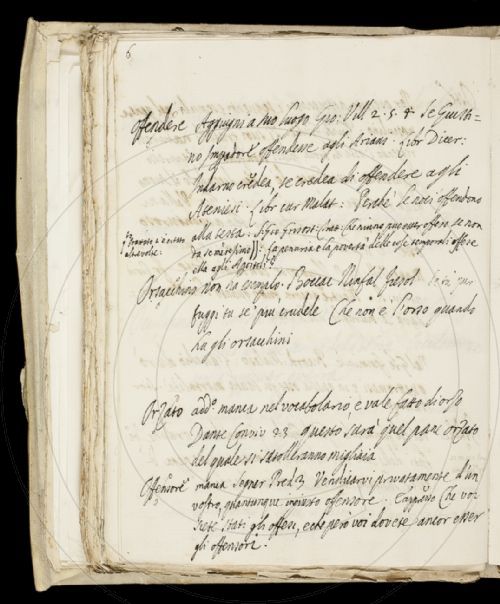 6
Offendere Aggiugni a suo luogo Gio: Vill 2. 5. 4 se Giusti=
no Imperadore offendesse agli Ariani. Libr Dicer:
Indarno credea, se credea di offendere agli
Ateniesi. Libr cur Malat: Perché se noi offendono
alla testa: 
ella agli Apostoli?
Orsacchino non ha esemplo. Boccac Ninfal Fiesol
fuggi tu se' piu crudele Che non è l'orso quando
ha gli orsacchini
Orzato add.o manca nel vocabolario, e vale fatto di orzo
Dante Conviv 23 questo sarà quel pane orzato
del quale si satolleranno migliaia
Offensore manca Segner Pred 3 Vendicarvi privatamente d'un
vostro, quantunque ingiusto offensore. E appresso Che voi
siete stati gli offesi, e che però voi dovete ancor esser
gli offensori.